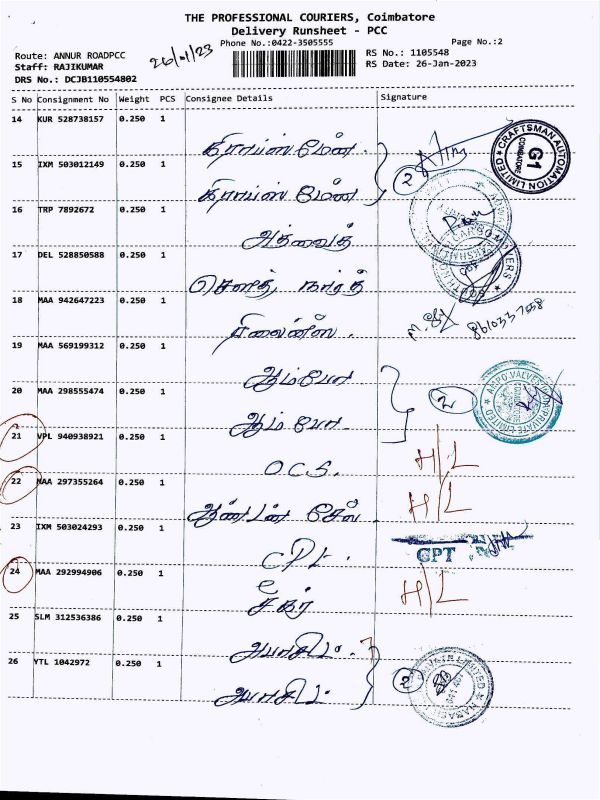 THE PROFESSIONAL COURIERS, Coimbatore
Delivery Runsheet - PCC
Phone No.:0422-3505555
Page No.:2
Route: ANNUR ROADPCC
26/01/23
RS No.: 1105548
Staff: RAJIKUMAR
RS Date: 26-Jan-2023
DRS No.: DCJB110554802
S No Consignment No Weight PCS Consignee Details Signature
14 KUR 528738157 0.250 1
கிராப்ஸ் மேன்
CRAFTSMAN AUTOMATION LIMITED
COIMBATORE
G1
15 IXM 503012149 0.250 1
2
கிராப்ஸ் மேன்
16 TRP 7892672 0.250 1
அத்வைத்
17 DEL 528850588 0.250 1
சௌத் நார்த்
18 MAA 942647223 0.250 1
ரிலையன்ஸ்
8610337558
19 MAA 569199312 0.250 1
ஆம்போ
20 MAA 298555474 0.250 1
2
ஆம்போ
AMPO VALVES INDIA PRIVATE LIMITED
21 VPL 940938921 0.250 1
O.C.S.
H/L
22 MAA 297355264 0.250 1
H/L
23 IXM 503024293 0.250 1
CPL.
GPT
24 MAA 292994906 0.250 1
H/L
25 SLM 312536386 0.250 1
26 YTL 1042972 0.250 1
2
PRIVATE LIMITED